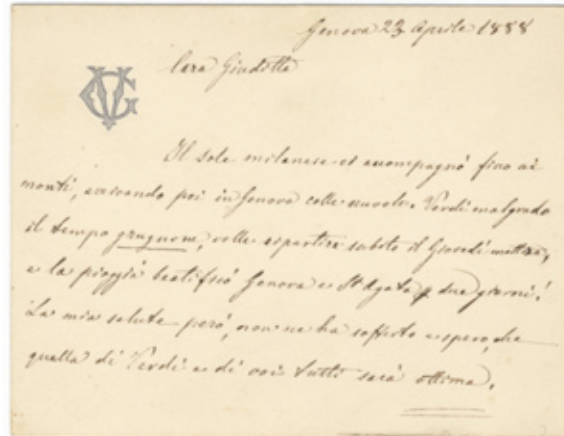 Genova 23 Aprile 1888
Cara Giuditta
Il sole milanese ci accompagnò fino ai
monti, arrivando poi in Genova colle nuvole. Verdi malgrado
il tempo grugnone, volle ripartire subito il Giovedì mattina,
e la pioggia beatificò Genova e St Agata p due giorni!
La mia salute però, non ne ha sofferto e spero, che
quella di Verdi e di voi tutti sarà ottima.